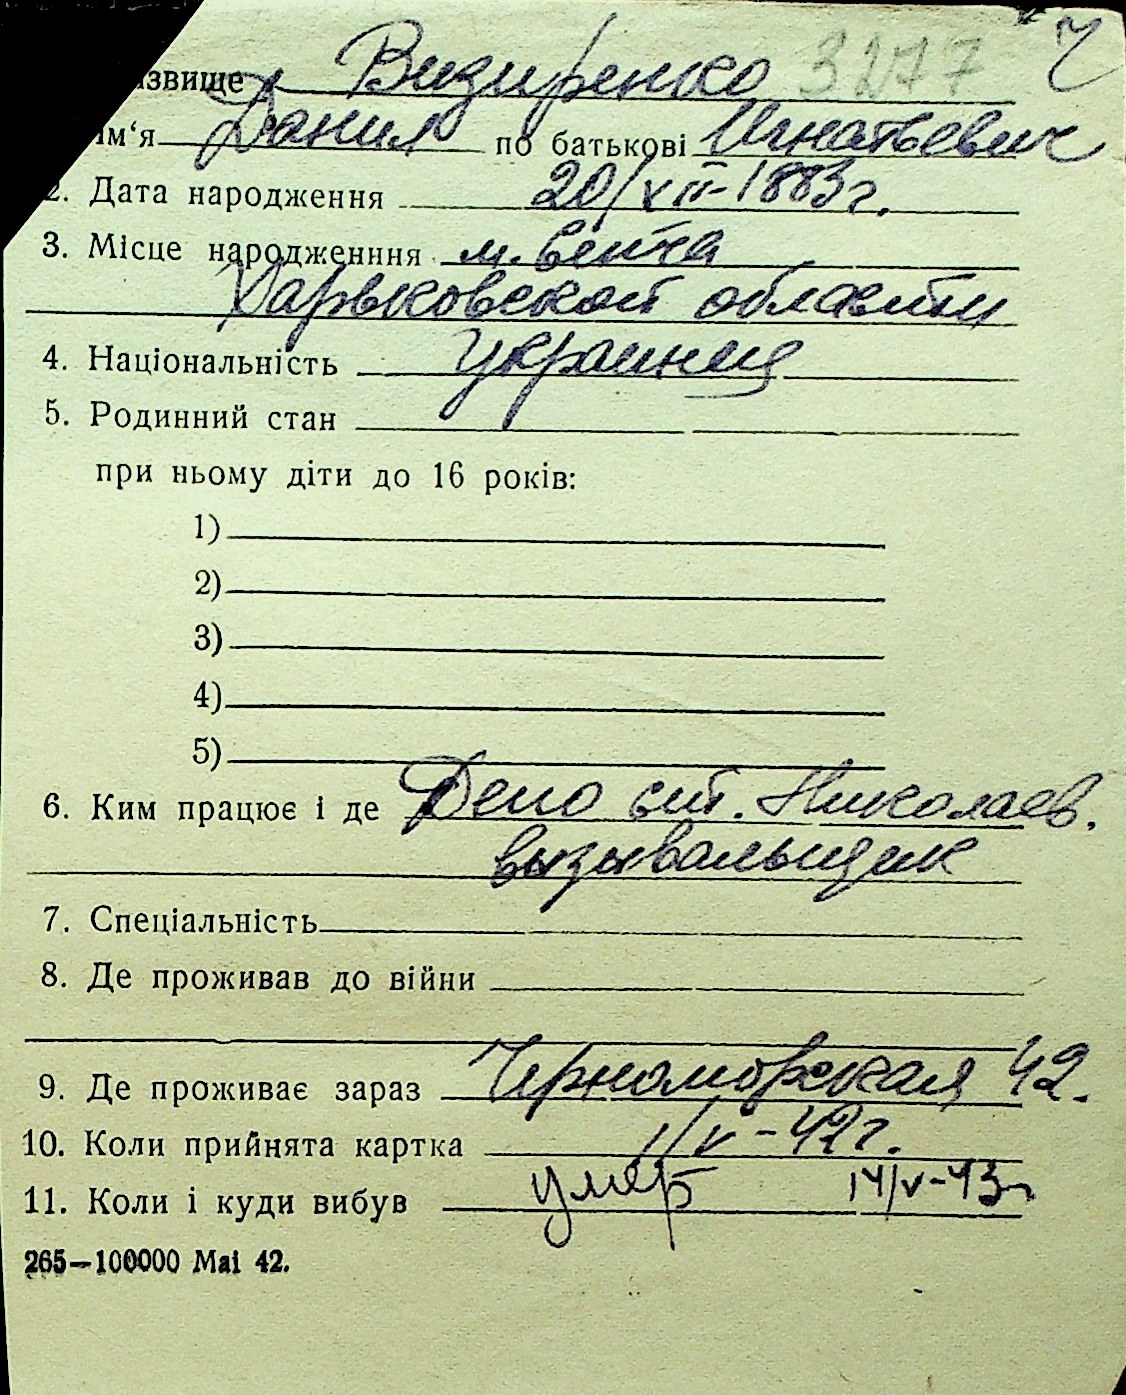 ізвище Визиренко 3277
ім‘я Данил по батькові Игнатьевич
2. Дата народження 20/VII-1883г.
3. Місце народженння м.
Харьковской области
4. Національність украинец
5. Родинний стан
при ньому діти до 16 років:
1)
2)
3)
4)
5)
6. Ким працює і де Депо ст. Николаев.
вызывальщик
7. Спеціальність
8. Де проживав до війни
9. Де проживає зараз Черноморская 42.
10. Коли прийнята картка 1/V-42г.
11. Коли і куди вибув умер 14/V-43г
265—100000 Mai 42.